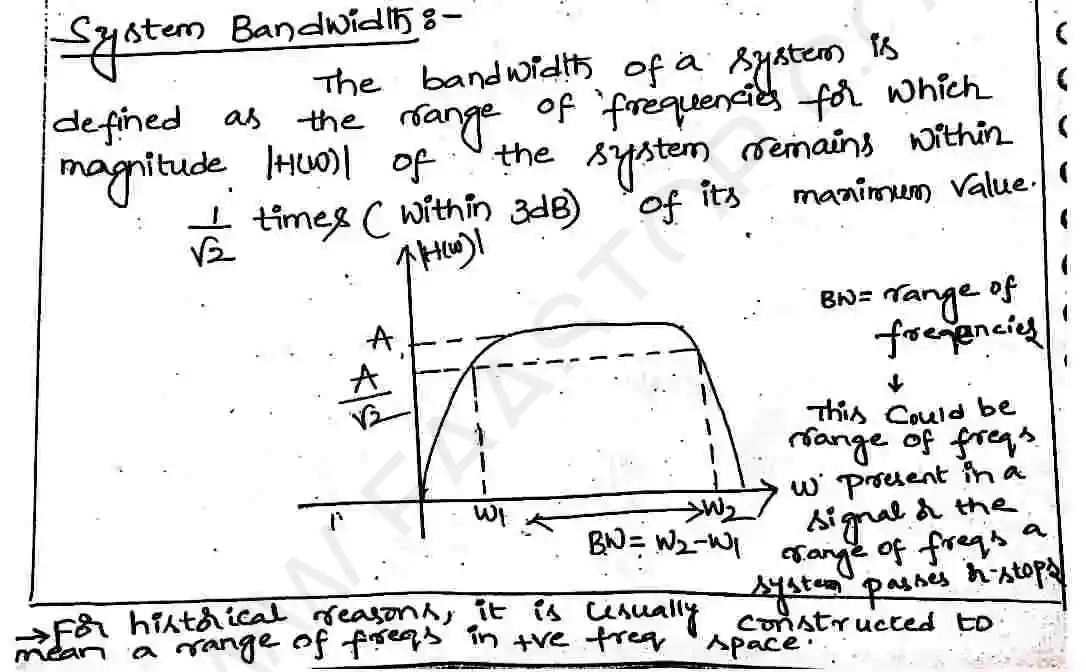 System Bandwidth :-
The bandwidth of a system is
defined as the range of frequencies for which
magnitude |H(ω)| of the system remains within
1/√2 times (within 3dB) of its maximum value.
|H(ω)|
A
A/√2
ω1
ω2
BW = ω2-ω1
BW = range of
freqencies
↓
This could be
range of freqs
ω present in a
signal or the
range of freqs a
system passes or stops
→ For historical reasons, it is usually constructed to
mean a range of freqs in +ve freq space.